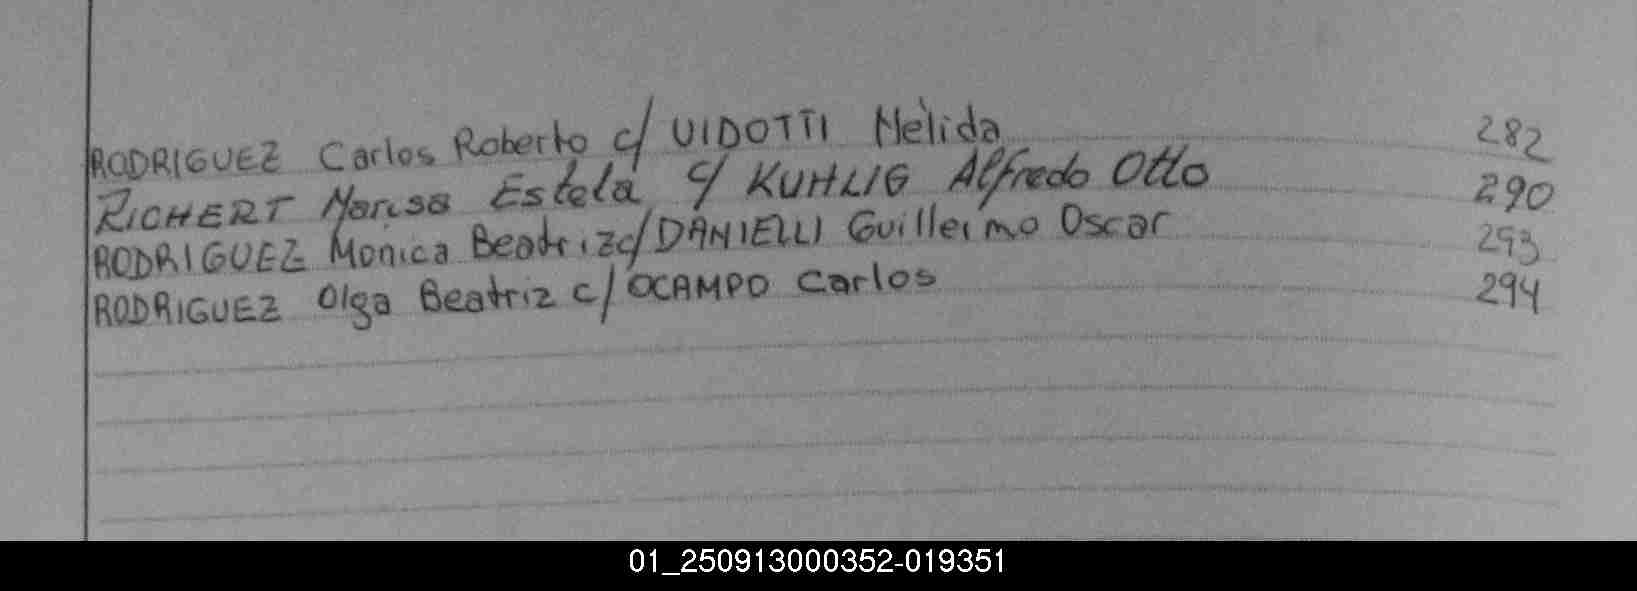 RODRIGUEZ Carlos Roberto c/ VIDOTTI Nèlida 282
RICHERT Marisa Estela c/ KUHLIG Alfredo Otto 290
RODRIGUEZ Mónica Beatriz c/ DANIELLI Guillermo Oscar 293
RODRIGUEZ Olga Beatriz c/ OCAMPO Carlos 294
01_250913000352-019351